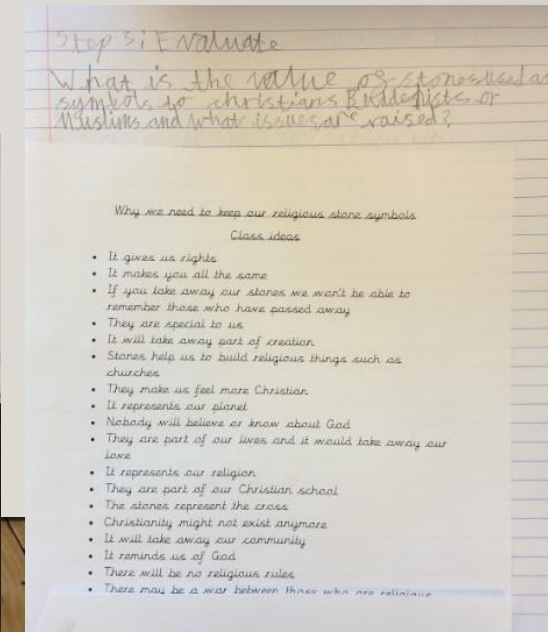 Step 3: Evaluate
What is the value of stones used as
symbols to christians Buddhists or
Muslims and what issues are raised?
Why we need to keep our religious stone symbols
Class ideas
• It gives us rights
• It makes you all the same
• If you take away our stones we won't be able to
remember those who have passed away
• They are special to us
• It will take away part of creation
• Stones help us to build religious things such as
churches
• They make us feel more Christian
• It represents our planet
• Nobody will believe or know about God
• They are part of our lives and it would take away our
love
• It represents our religion
• They are part of our Christian school
• The stones represent the cross
• Christianity might not exist anymore
• It will take away our community
• It reminds us of God
• There will be no religious rules
• There may be a war between those who are religious